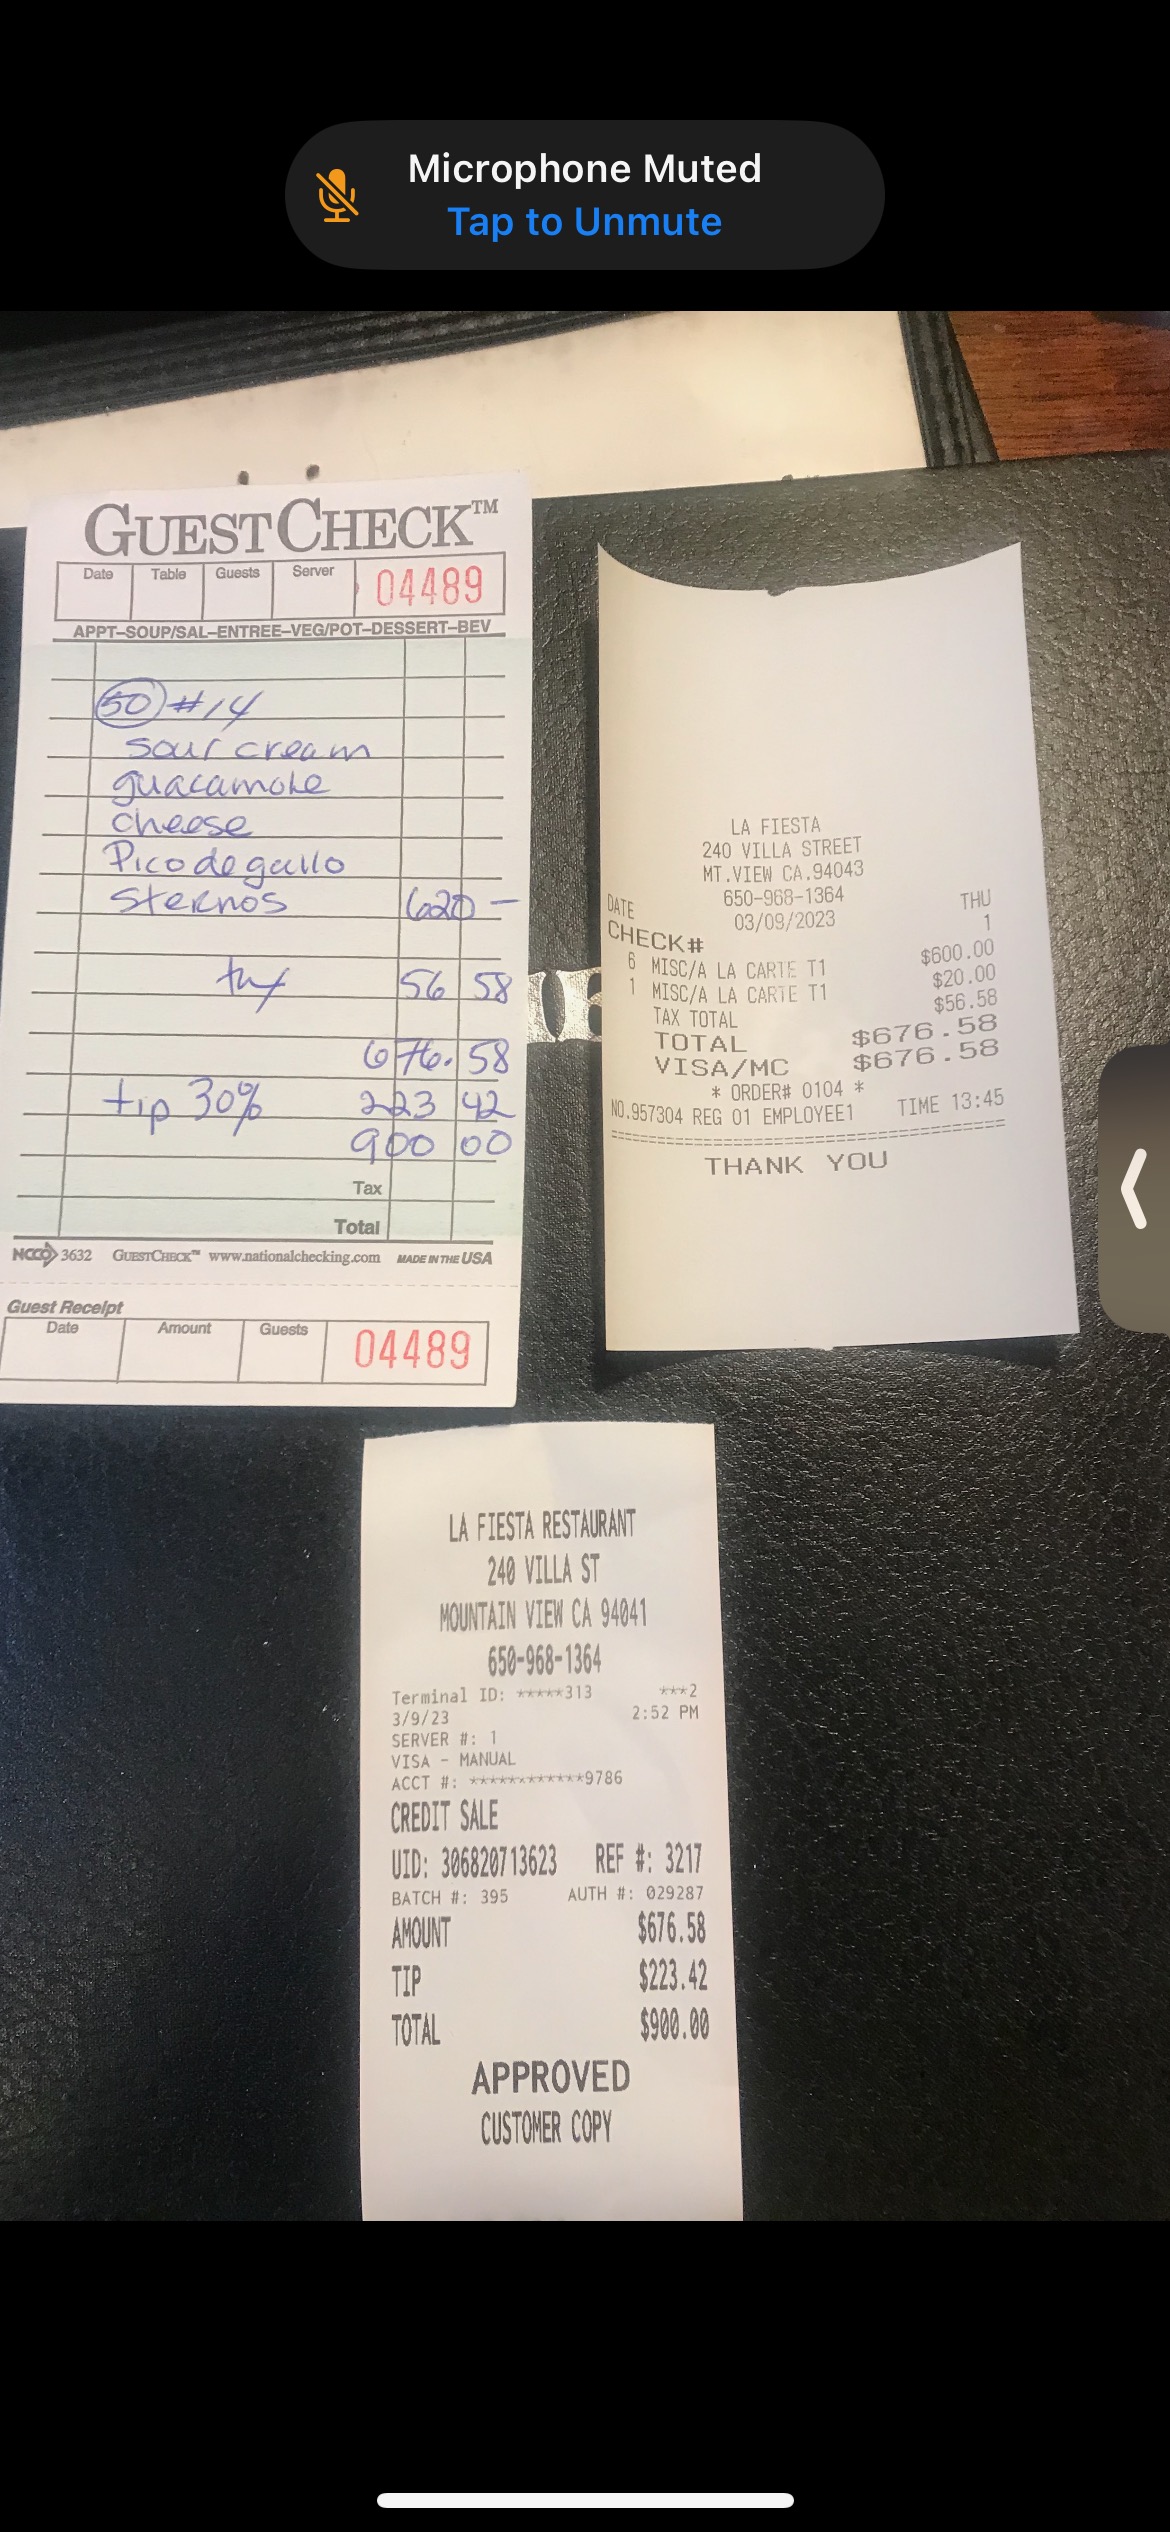 Microphone Muted
Tap to Unmute
GUESTCHECK™
Date Table Guests Server 04489
APPT–SOUP/SAL–ENTREE–VEG/POT–DESSERT–BEV
50 #14
sour cream
guacamole
cheese
Pico de gallo
Sternos 620 –
56 58
676.58
tip 30% 223 42
900 00
Tax
Total
NCCO 3632 GUESTCHECK™ www.nationalchecking.com MADE IN THE USA
Guest Receipt
Date Amount Guests 04489
LA FIESTA
240 VILLA STREET
MT.VIEW CA.94043
650-968-1364
DATE 03/09/2023 THU
CHECK# 1
6 MISC/A LA CARTE T1 $600.00
1 MISC/A LA CARTE T1 $20.00
TAX TOTAL $56.58
TOTAL $676.58
VISA/MC $676.58
* ORDER# 0104 *
NO.957304 REG 01 EMPLOYEE1 TIME 13:45
THANK YOU
LA FIESTA RESTAURANT
240 VILLA ST
MOUNTAIN VIEW CA 94041
650-968-1364
Terminal ID: *****313 ***2
3/9/23 2:52 PM
SERVER #: 1
VISA - MANUAL
ACCT #: ************9786
CREDIT SALE
UID: 306820713623 REF #: 3217
BATCH #: 395 AUTH #: 029287
AMOUNT $676.58
TIP $223.42
TOTAL $900.00
APPROVED
CUSTOMER COPY